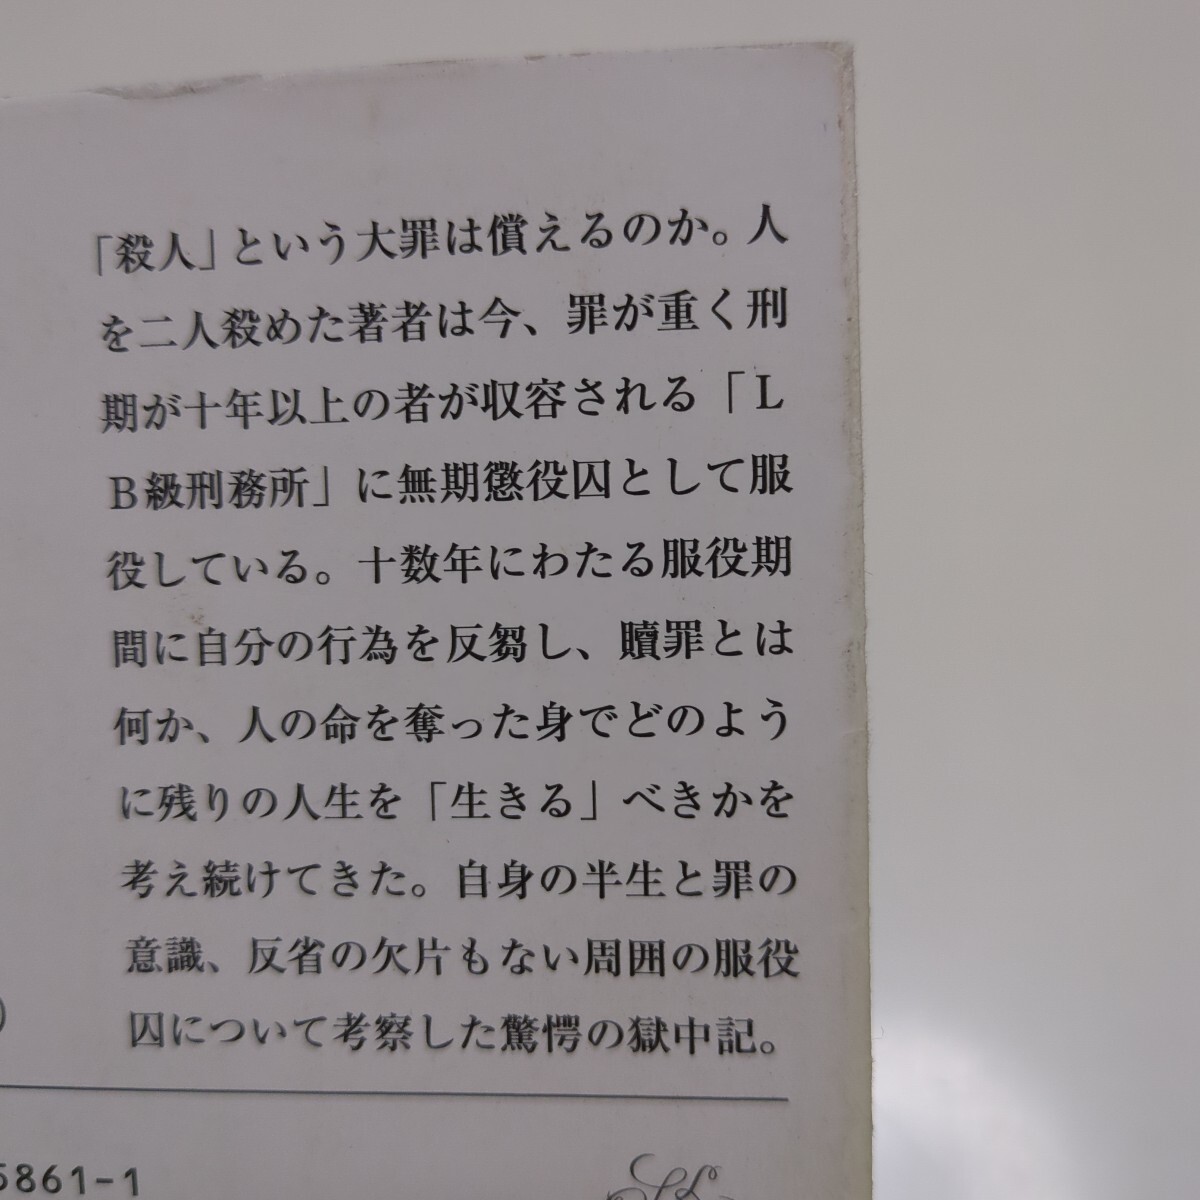 「殺人」という大罪は償えるのか。人
を二人殺めた著者は今、罪が重く刑
期が十年以上の者が収容される「L
B級刑務所」に無期懲役囚として服
役している。十数年にわたる服役期
間に自分の行為を反芻し、贖罪とは
何か、人の命を奪った身でどのよう
に残りの人生を「生きる」べきかを
考え続けてきた。自身の半生と罪の
意識、反省の欠片もない周囲の服役
囚について考察した驚愕の獄中記。
)
5861-1